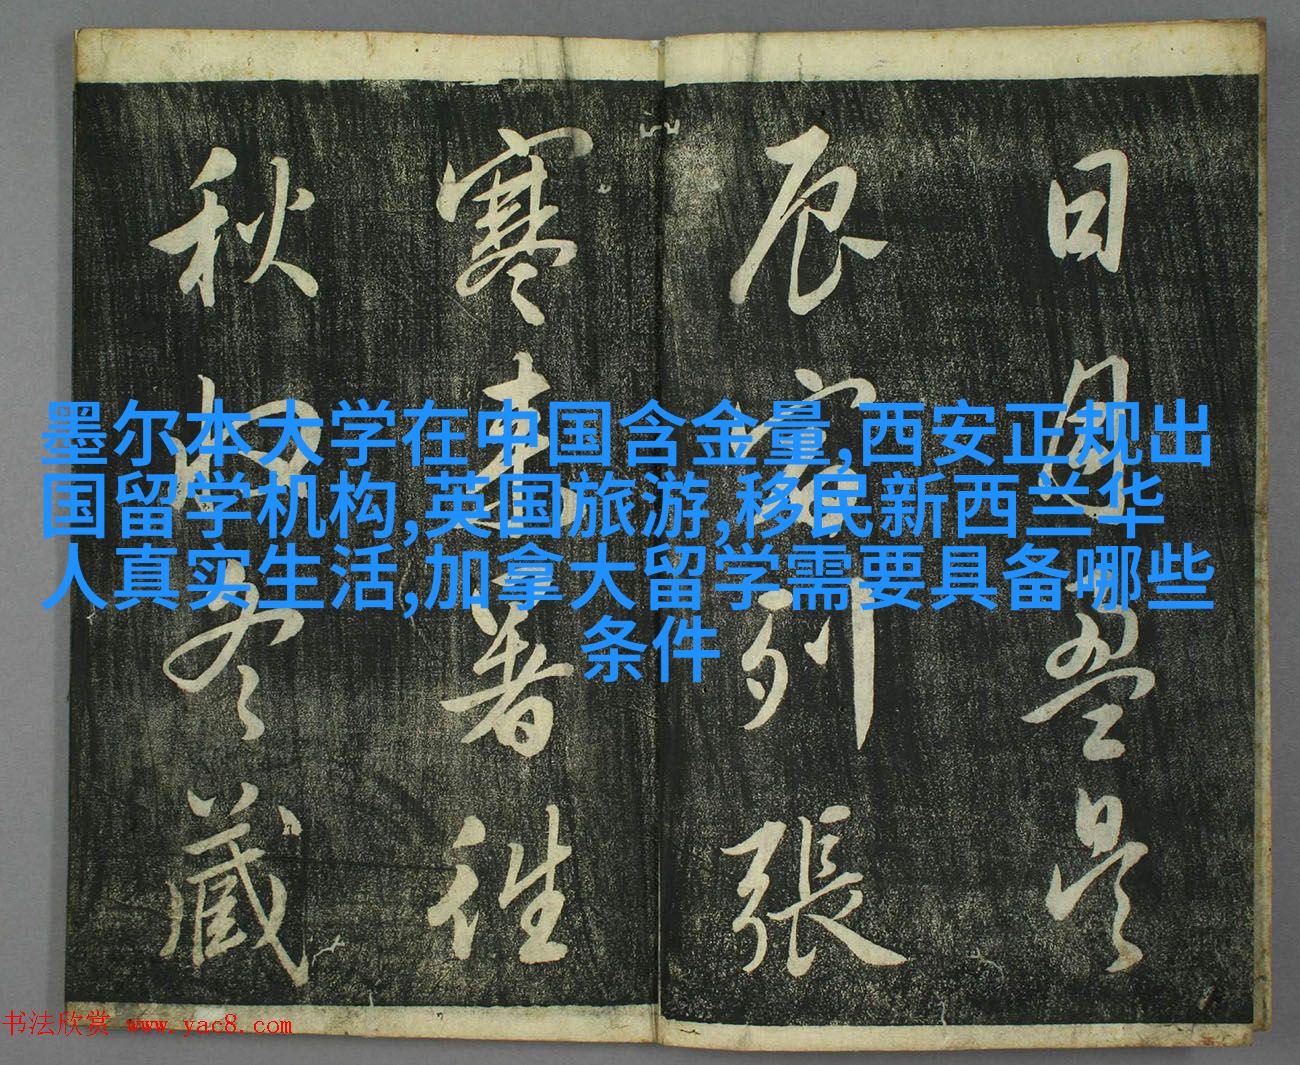 日月盈昃
辰宿列張
寒来暑往
秋收冬藏
墨尔本大学在中国含金量,西安正规出
国留学机构,英国旅游,移民新西兰华
人真实生活,加拿大留学需要具备哪些
条件
书法欣赏 www.yac8.com